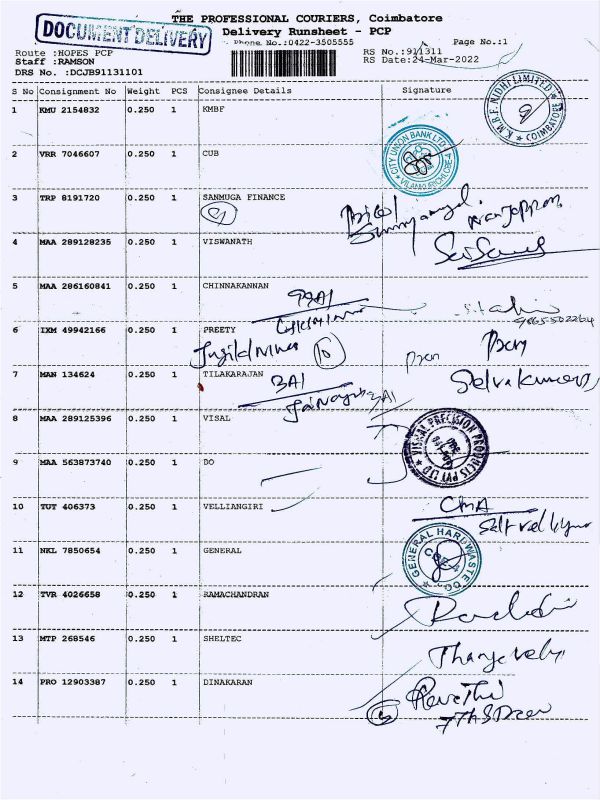 THE PROFESSIONAL COURIERS, Coimbatore
DOCUMENT DELIVERY
Delivery Runsheet - PCP
Phone No.:0422-3505555 Page No.:1
Route :HOPES PCP RS No.:911311
Staff :RAMSON RS Date:24-Mar-2022
DRS No. :DCJB91131101
S No Consignment No Weight PCS Consignee Details Signature
1 KMU 2154832 0.250 1 KMBF
K.M.B.F. NIDHI LIMITED * COIMBATORE
2 VRR 7046607 0.250 1 CUB
CITY UNION BANK LTD.
3 TRP 8191720 0.250 1 SANMUGA FINANCE
4 MAA 289128235 1 VISWANATH 0.250
5 MAA 286160841 0.250 1 CHINNAKANNAN
6 IXM 49942166 0.250 1 PREETY
10
7 MAN 134624 0.250 1 TILAKARAJAN
Selvakumar
8 MAA 289125396 0.250 1 VISAL
VISHAL PRECISION PRODUCTS PVT LTD
9 MAA 563873740 0.250 1 DO
10 TUT 406373 0.250 1 VELLIANGIRI
11 NKL 7850654 0.250 1 GENERAL
GENERAL HARDWASTE CO
12 TVR 4026658 0.250 1 RAMACHANDRAN
13 MTP 268546 0.250 1 SHELTEC
14 PRO 12903387 0.250 1 DINAKARAN
Revathi